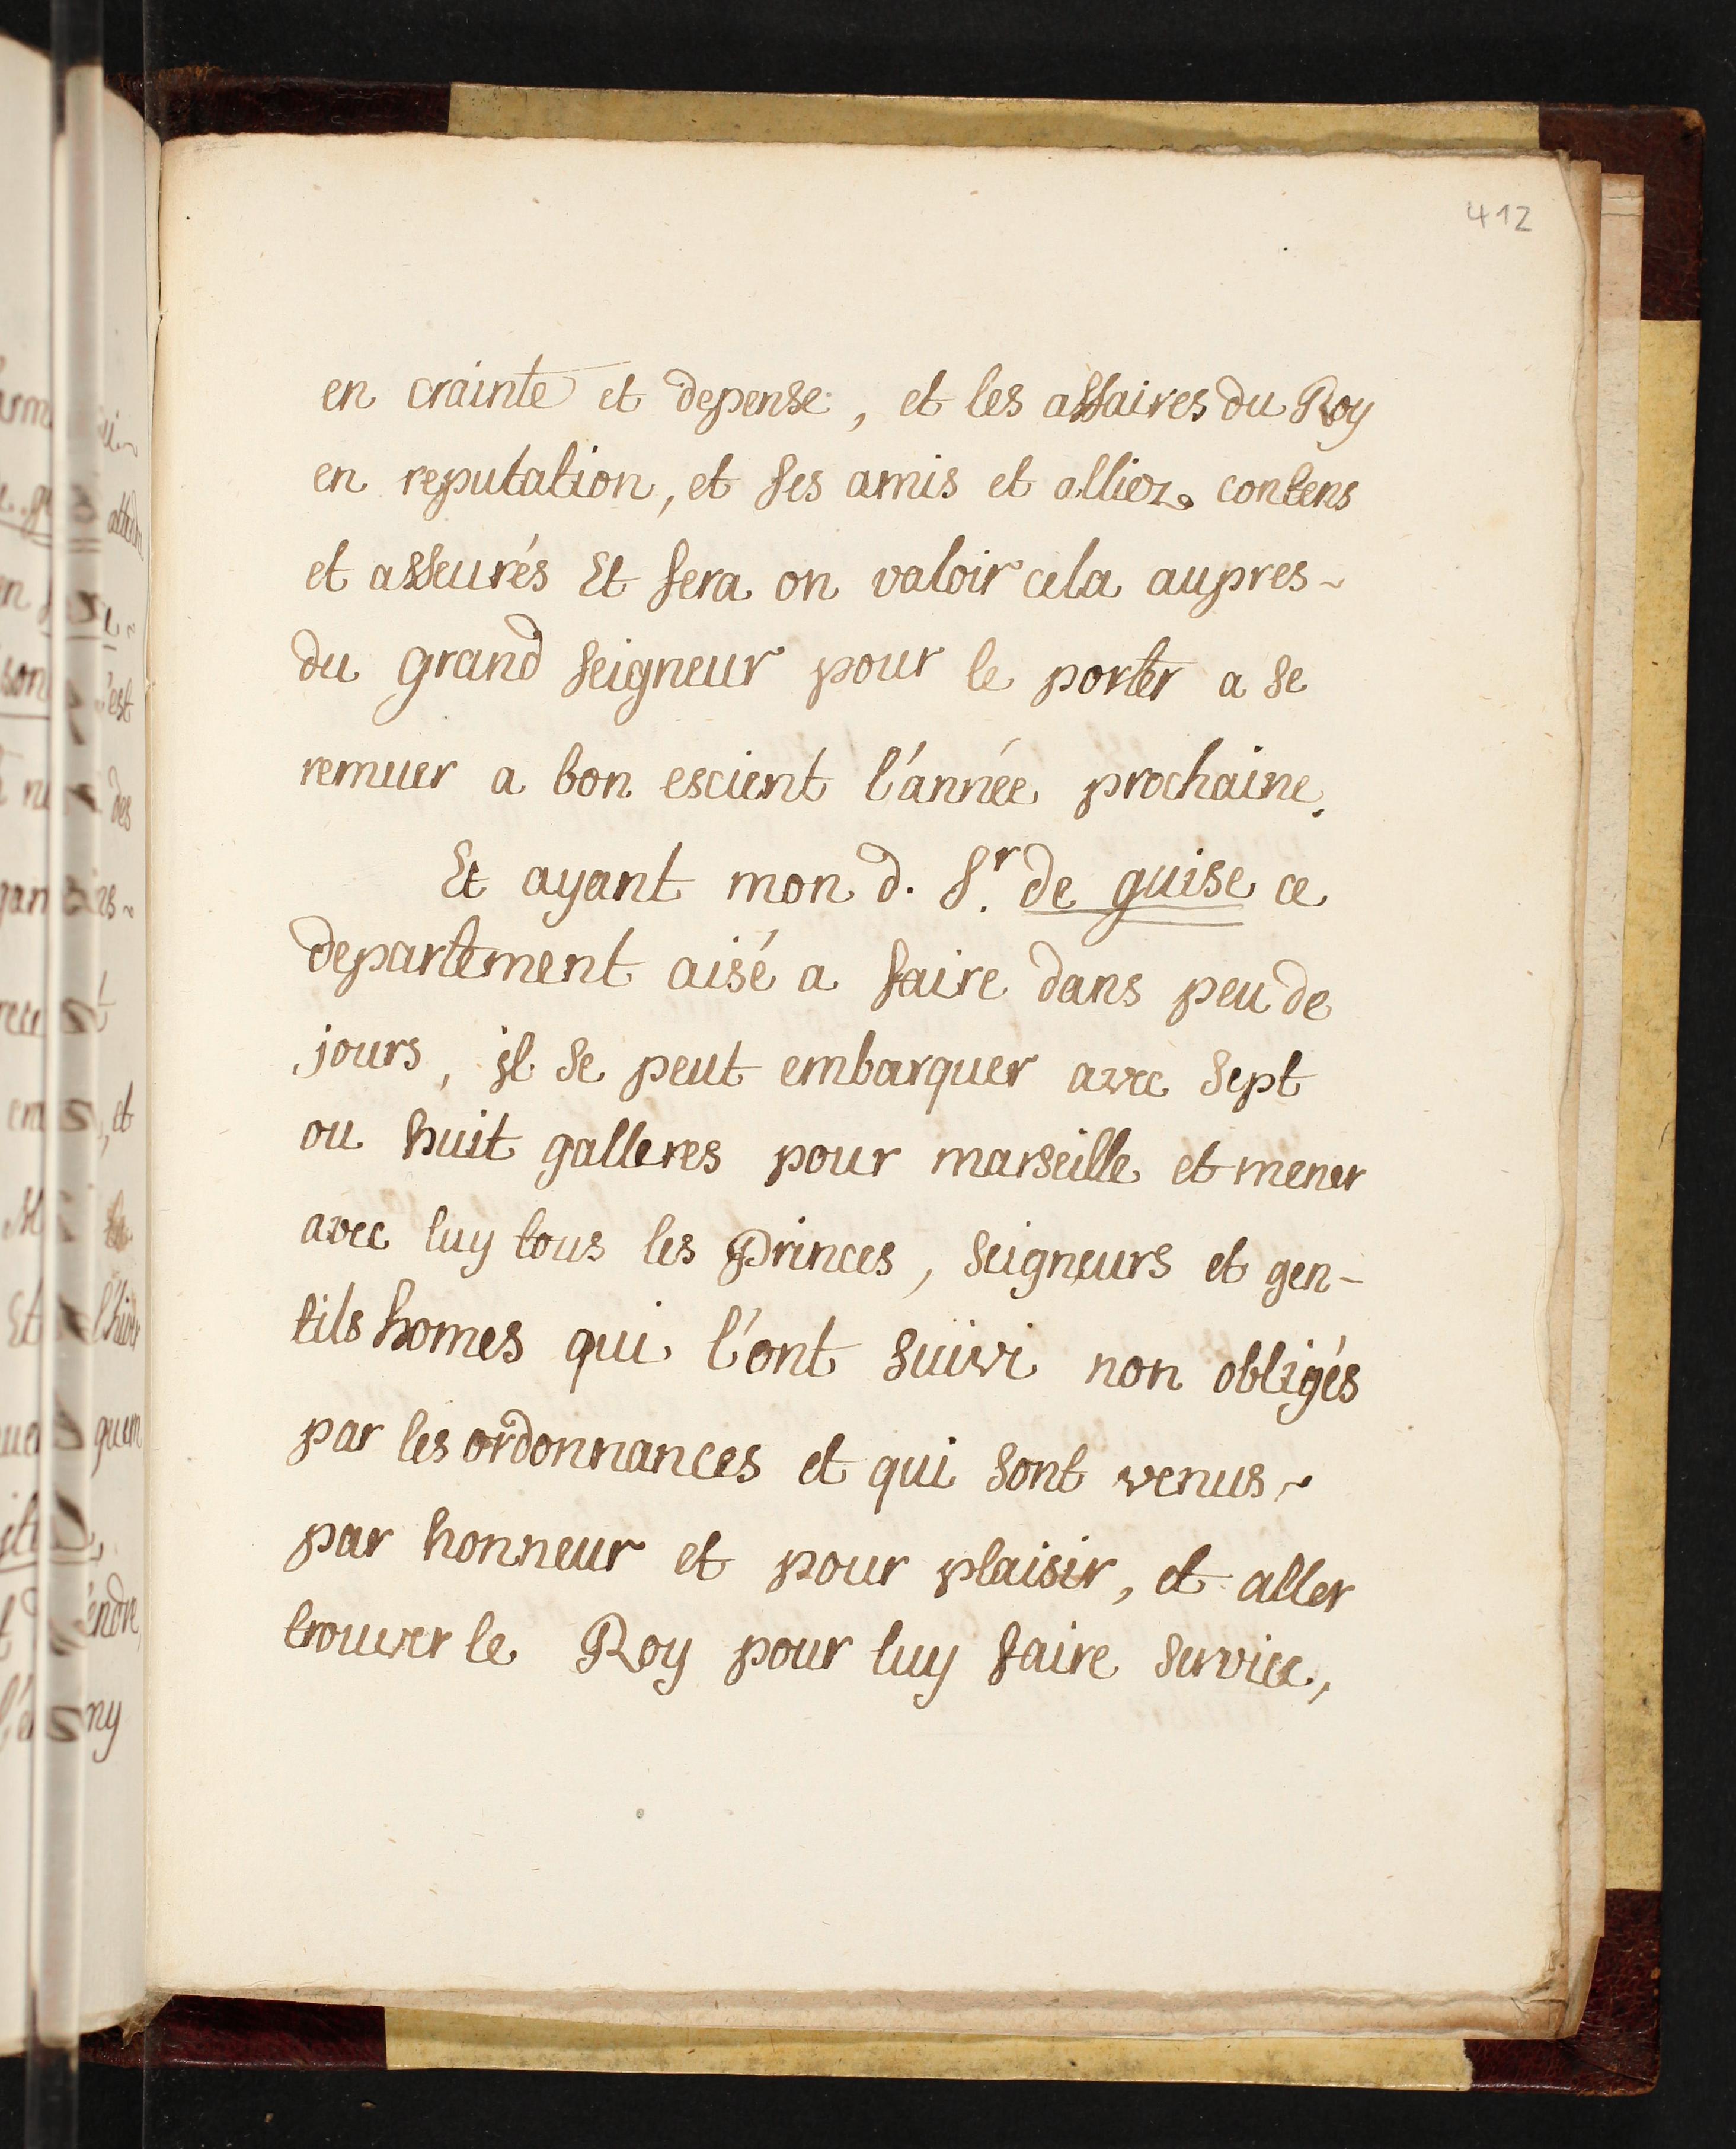 412
en crainte et depense, et les affaires du Roy
en reputation, et ses amis et alliez contens
et asseurés Et fera on valoir cela aupres~
du grand seigneur pour le porter a se
remuer a bon escient l'année prochaine.
Et ayant mon d. Sr. de guise ce
departement aisé a faire dans peu de
jours, il se peut embarquer avec sept
ou huit galleres pour marseille et mener
avec luy tous les Princes, seigneurs et gen-
tils homes qui l'ont suivi non obligés
par les ordonnances et qui sont venus~
par honneur et pour plaisir, et aller
trouver le Roy pour luy faire service,